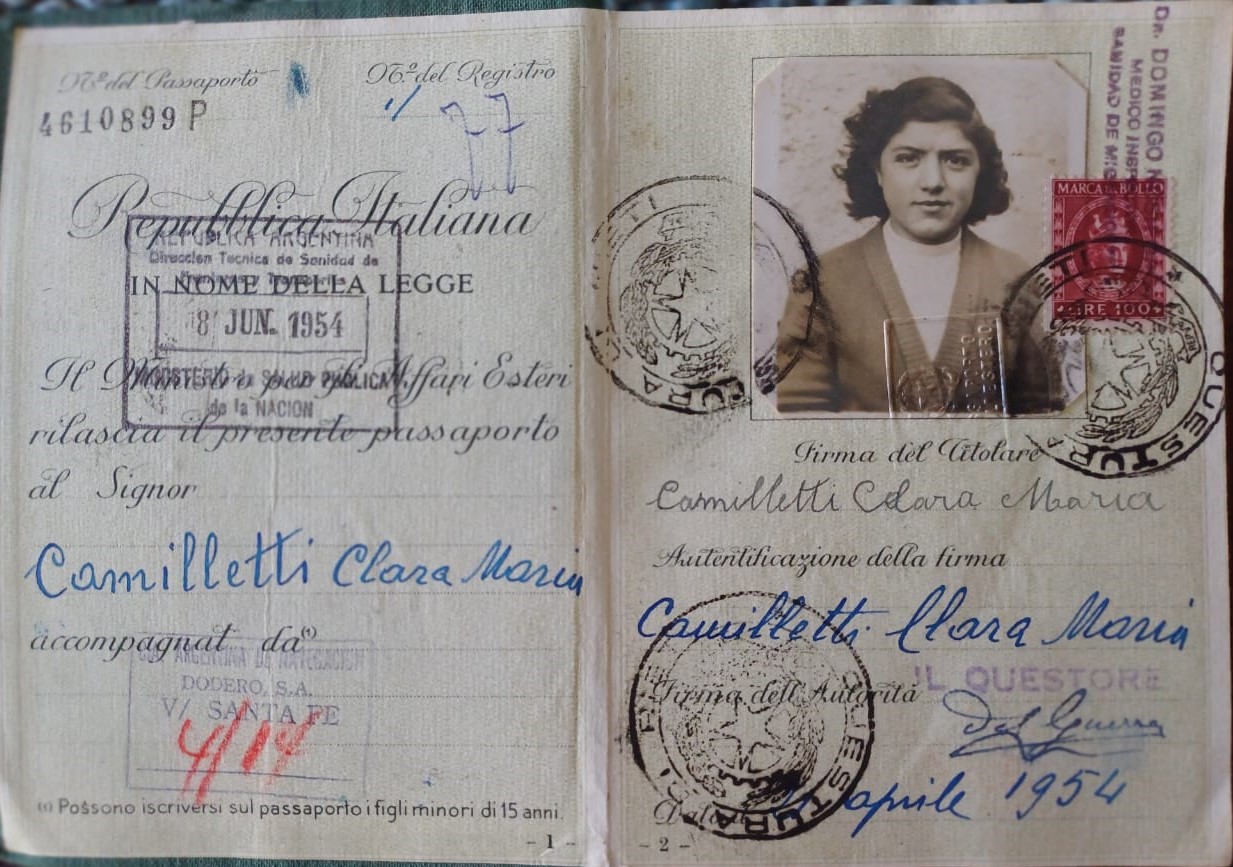 Nº del Passaporto
Nº del Registro
4610899 P
77
Repubblica Italiana
REPUBLICA ARGENTINA
Direccion Tecnica de Sanidad de
IN NOME DELLA LEGGE
8 JUN. 1954
Il Ministro per gli Affari Esteri
MINISTERIO de SALUD PUBLICA
de la NACION
rilascia il presente passaporto
al Signor
Camilletti Clara Maria
accompagnat da(1)
ARGENTINA DE NAVEGACION
DODERO, S.A.
V/ SANTA FE
4/14
(1) Possono iscriversi sul passaporto i figli minori di 15 anni.
- 1 -
Dr. DOMINGO
MEDICO
SANIDAD DE
MARCA DA BOLLO
LIRE 100
QUESTURA
QUESTURA
Firma del Titolare
Camilletti Clara Maria
Autentificazione della firma
Camilletti Clara Maria
Firma dell'Autorità
IL QUESTORE
Del Guerra
QUESTURA
Data
aprile 1954
- 2 -